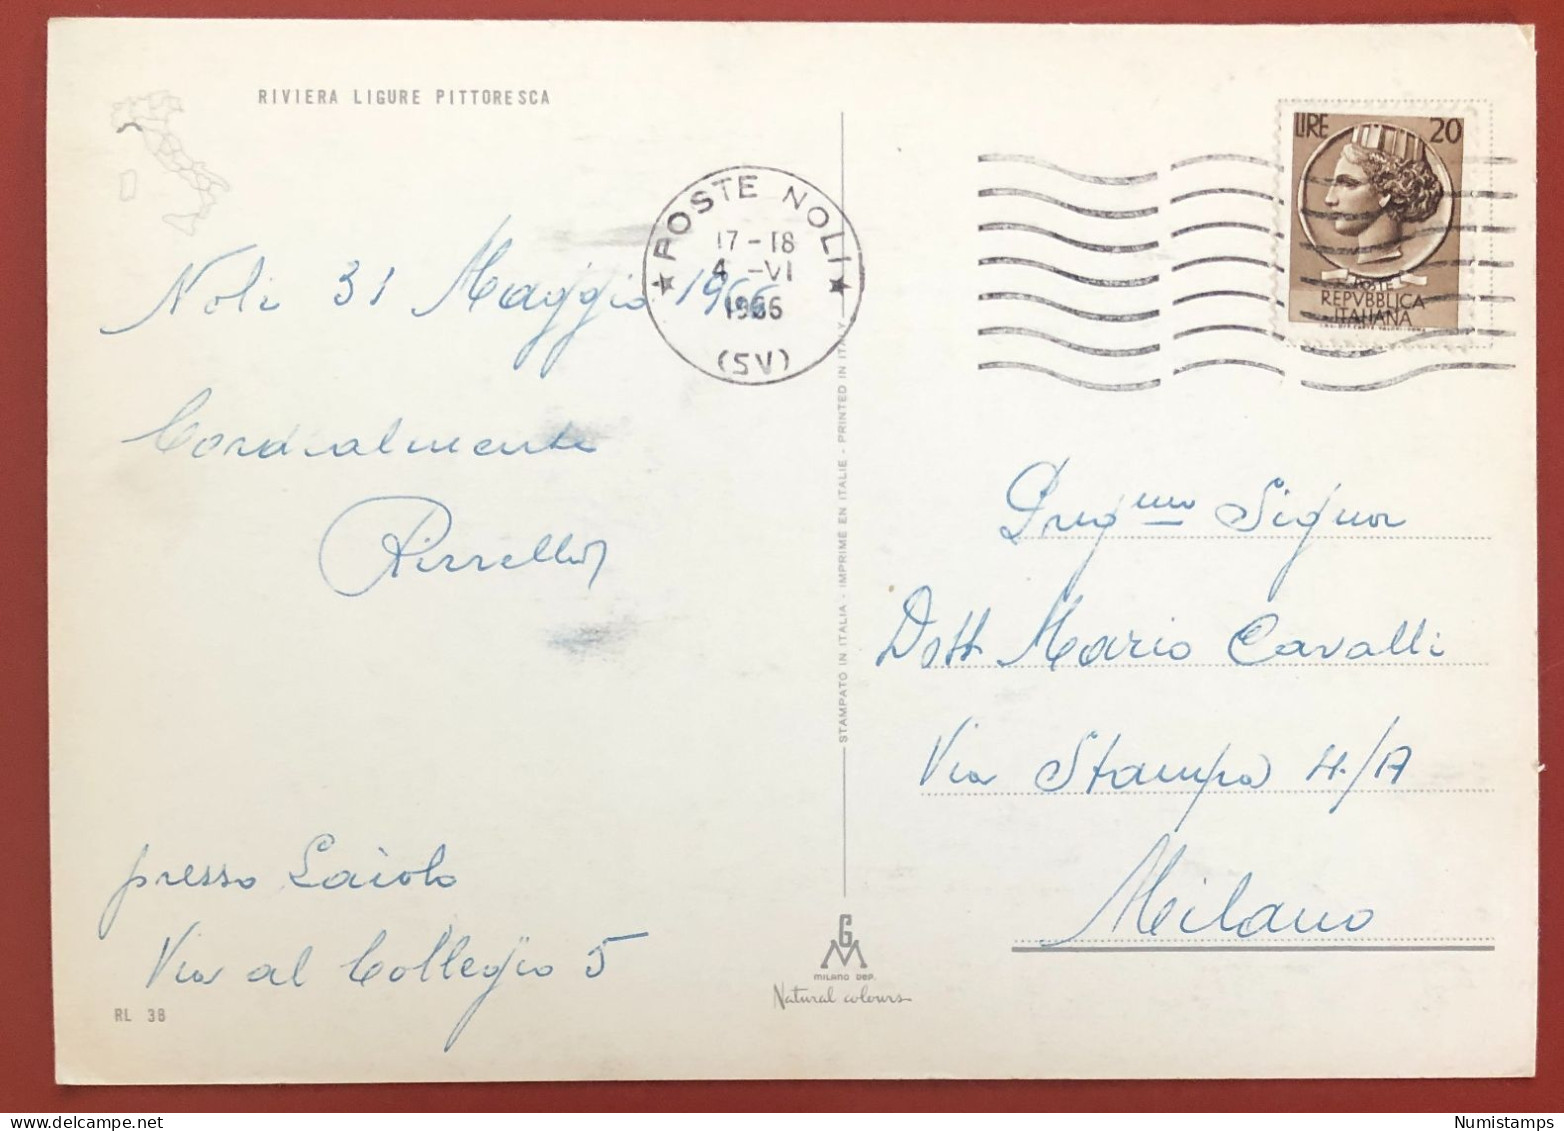 RIVIERA LIGURE PITTORESCA
POSTE NOLI
17-18
4 -VI
1966
(SV)
LIRE 20
POSTE
REPVBBLICA
ITALIANA
Noli 31 Maggio 1966
Cordialmente
presso Laiolo
Via al Collegio 5
RL 38
STAMPATO IN ITALIA - IMPRIME EN ITALIE - PRINTED IN ITALY
GM
MILANO DEP.
Natural colours
Signor
Dott Mario Cavalli
Via Stampa 4/A
Milano
Numistamps